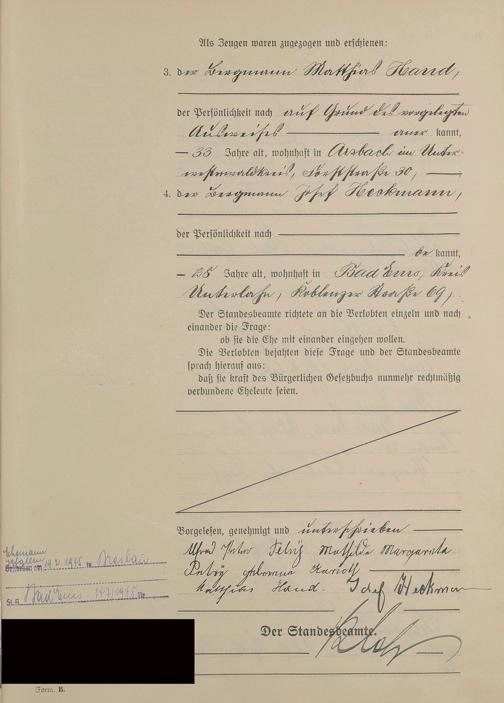 Als Zeugen waren zugezogen und erschienen:
3. der Bergmann Matthias Hand,
der Persönlichkeit nach auf Grund des vorgelegten
Ausweises aner kannt,
33 Jahre alt, wohnhaft in Arzbach im Unter-
westerwaldkreis, 30,
4. der Bergmann Josef Heckmann,
der Persönlichkeit nach
be kannt,
Jahre alt, wohnhaft in Bad Ems, Kreis
Unterlahn, Koblenzer Straße 69,
Der Standesbeamte richtete an die Verlobten einzeln und nach
einander die Frage:
ob sie die Ehe mit einander eingehen wollen.
Die Verlobten bejahten diese Frage und der Standesbeamte
sprach hierauf aus:
daß sie kraft des Bürgerlichen Gesetzbuchs nunmehr rechtmäßig
verbundene Eheleute seien.
Vorgelesen, genehmigt und unterschrieben
Alfred Peter Mathilde Margareta
geborene
Matthias Hand. Josef Heckmann
Der Standesbeamte.
Ehemann
gefallen
am 1945 in
St.A. Bad Ems /1945 Nr.
Form. B.